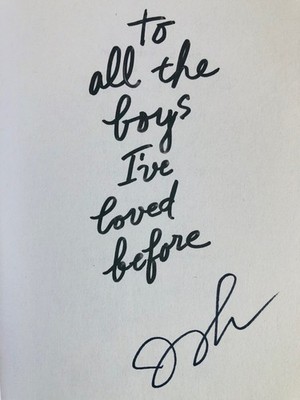 to
all the
boys
I've
loved
before